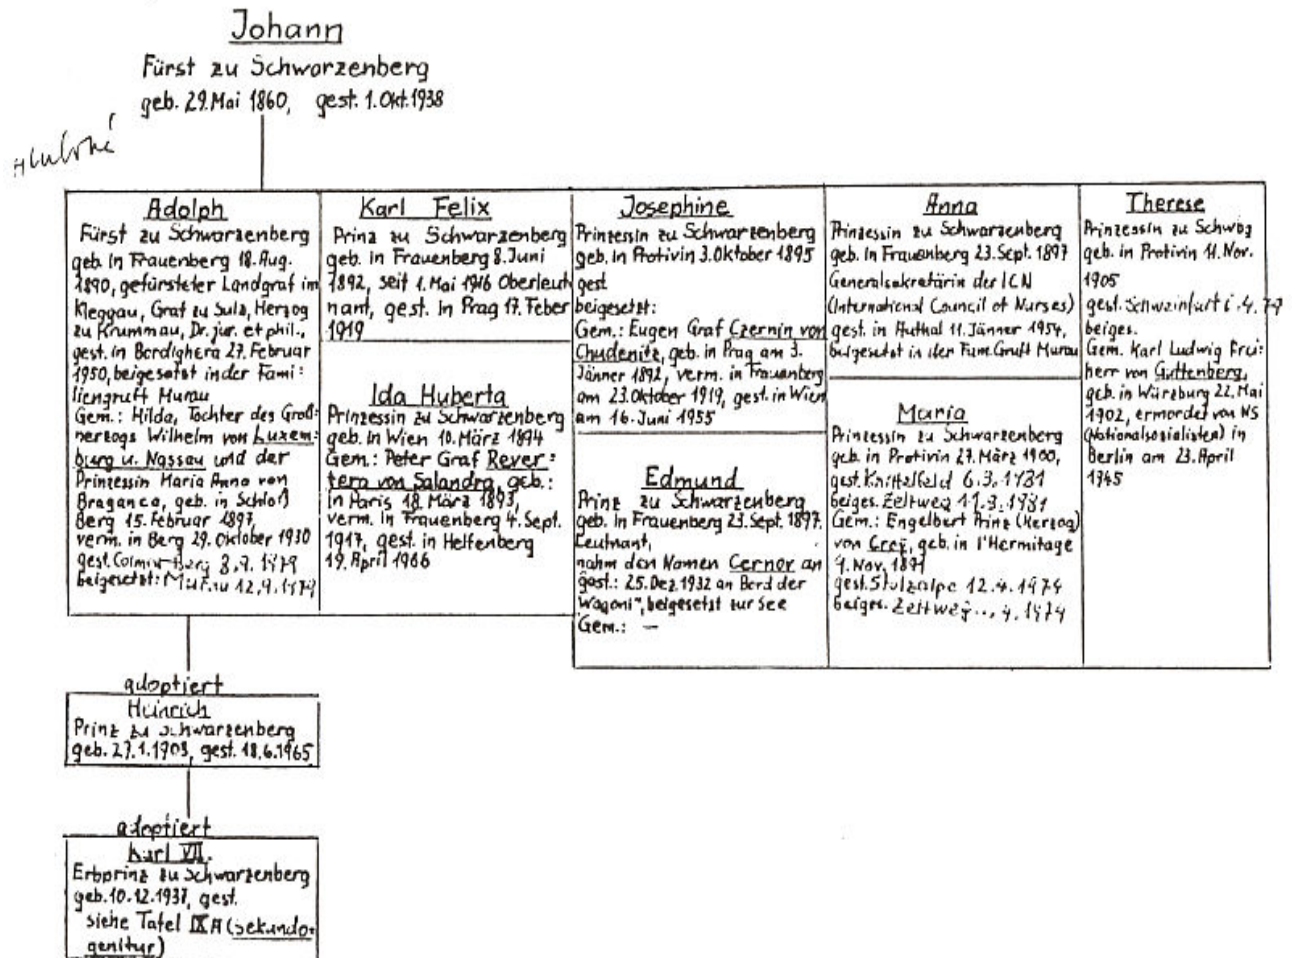 Johann
Fürst zu Schwarzenberg
geb. 29. Mai 1860, gest. 1. Okt. 1938
Adolph
Fürst zu Schwarzenberg
geb. in Frauenberg 18. Aug.
1890, gefürsteter Landgraf im
Kleggau, Graf zu Sulz, Herzog
zu Krummau, Dr. jur. et phil.,
gest. in Bordighera 27. Februar
1950, beigesetzt in der Fami:
liengruft Murau
Gem.: Hilda, Tochter des Groß:
herzogs Wilhelm von Luxem:
burg u. Nassau und der
Prinzessin Maria Anna von
Braganca, geb. in Schloß
Berg 15. Februar 1897,
verm. in Berg 29. Oktober 1930
gest. Colmar-Berg 8.9.1979
beigesetzt: Murau 12.9.1979
Karl Felix
Prinz zu Schwarzenberg
geb. in Frauenberg 8. Juni
1892, seit 1. Mai 1916 Oberleut
nant, gest. in Prag 17. Feber
1919
Ida Huberta
Prinzessin zu Schwarzenberg
geb. in Wien 10. März 1894
Gem.: Peter Graf Rever:
tera von Salandra, geb.:
in Paris 18. März 1893,
verm. in Frauenberg 4. Sept.
1917, gest. in Helfenberg
19. April 1966
Josephine
Prinzessin zu Schwarzenberg
geb. in Protivin 3. Oktober 1895
gest
beigesetzt:
Gem.: Eugen Graf Czernin von
Chudenitz, geb. in Prag am 3.
Jänner 1892, verm. in Frauenberg
am 23. Oktober 1919, gest. in Wien
am 16. Juni 1955
Edmund
Prinz zu Schwarzenberg
geb. in Frauenberg 23. Sept. 1897.
Leutnant,
nahm den Namen Cernov an
gest.: 25. Dez. 1932 an Bord der
Wagoni", beigesetzt zur See
Gem.: —
Anna
Prinzessin zu Schwarzenberg
geb. in Frauenberg 23. Sept. 1897
Generalsekretärin der ICN
(International Council of Nurses)
gest. in Authal 11. Jänner 1954,
beigesetzt in der Fam. Gruft Murau
Maria
Prinzessin zu Schwarzenberg
geb. in Protivin 27. März 1900,
gest. Knittelfeld 6.3.1981
beiges. Zeltweg 11.3.1981
Gem.: Engelbert Prinz (Herzog)
von Croÿ, geb. in l'Hermitage
9. Nov. 1891
gest. Stolzalpe 12.4.1974
beiges. Zeltweg ..., 4.1974
Therese
Prinzessin zu Schwbg
geb. in Protivin 11. Nov.
1905
gest. Schweinfurt 4.79
beiges.
Gem. Karl Ludwig Frei:
herr von Guttenberg,
geb. in Würzburg 22. Mai
1902, ermordet von NS
(Nationalsozialisten) in
Berlin am 23. April
1945
adoptiert
Heinrich
Prinz zu Schwarzenberg
geb. 29.1.1903, gest. 18.6.1965
adoptiert
Karl VII.
Erbprinz zu Schwarzenberg
geb. 10.12.1937, gest.
siehe Tafel IX A (Sekundo:
genitur)